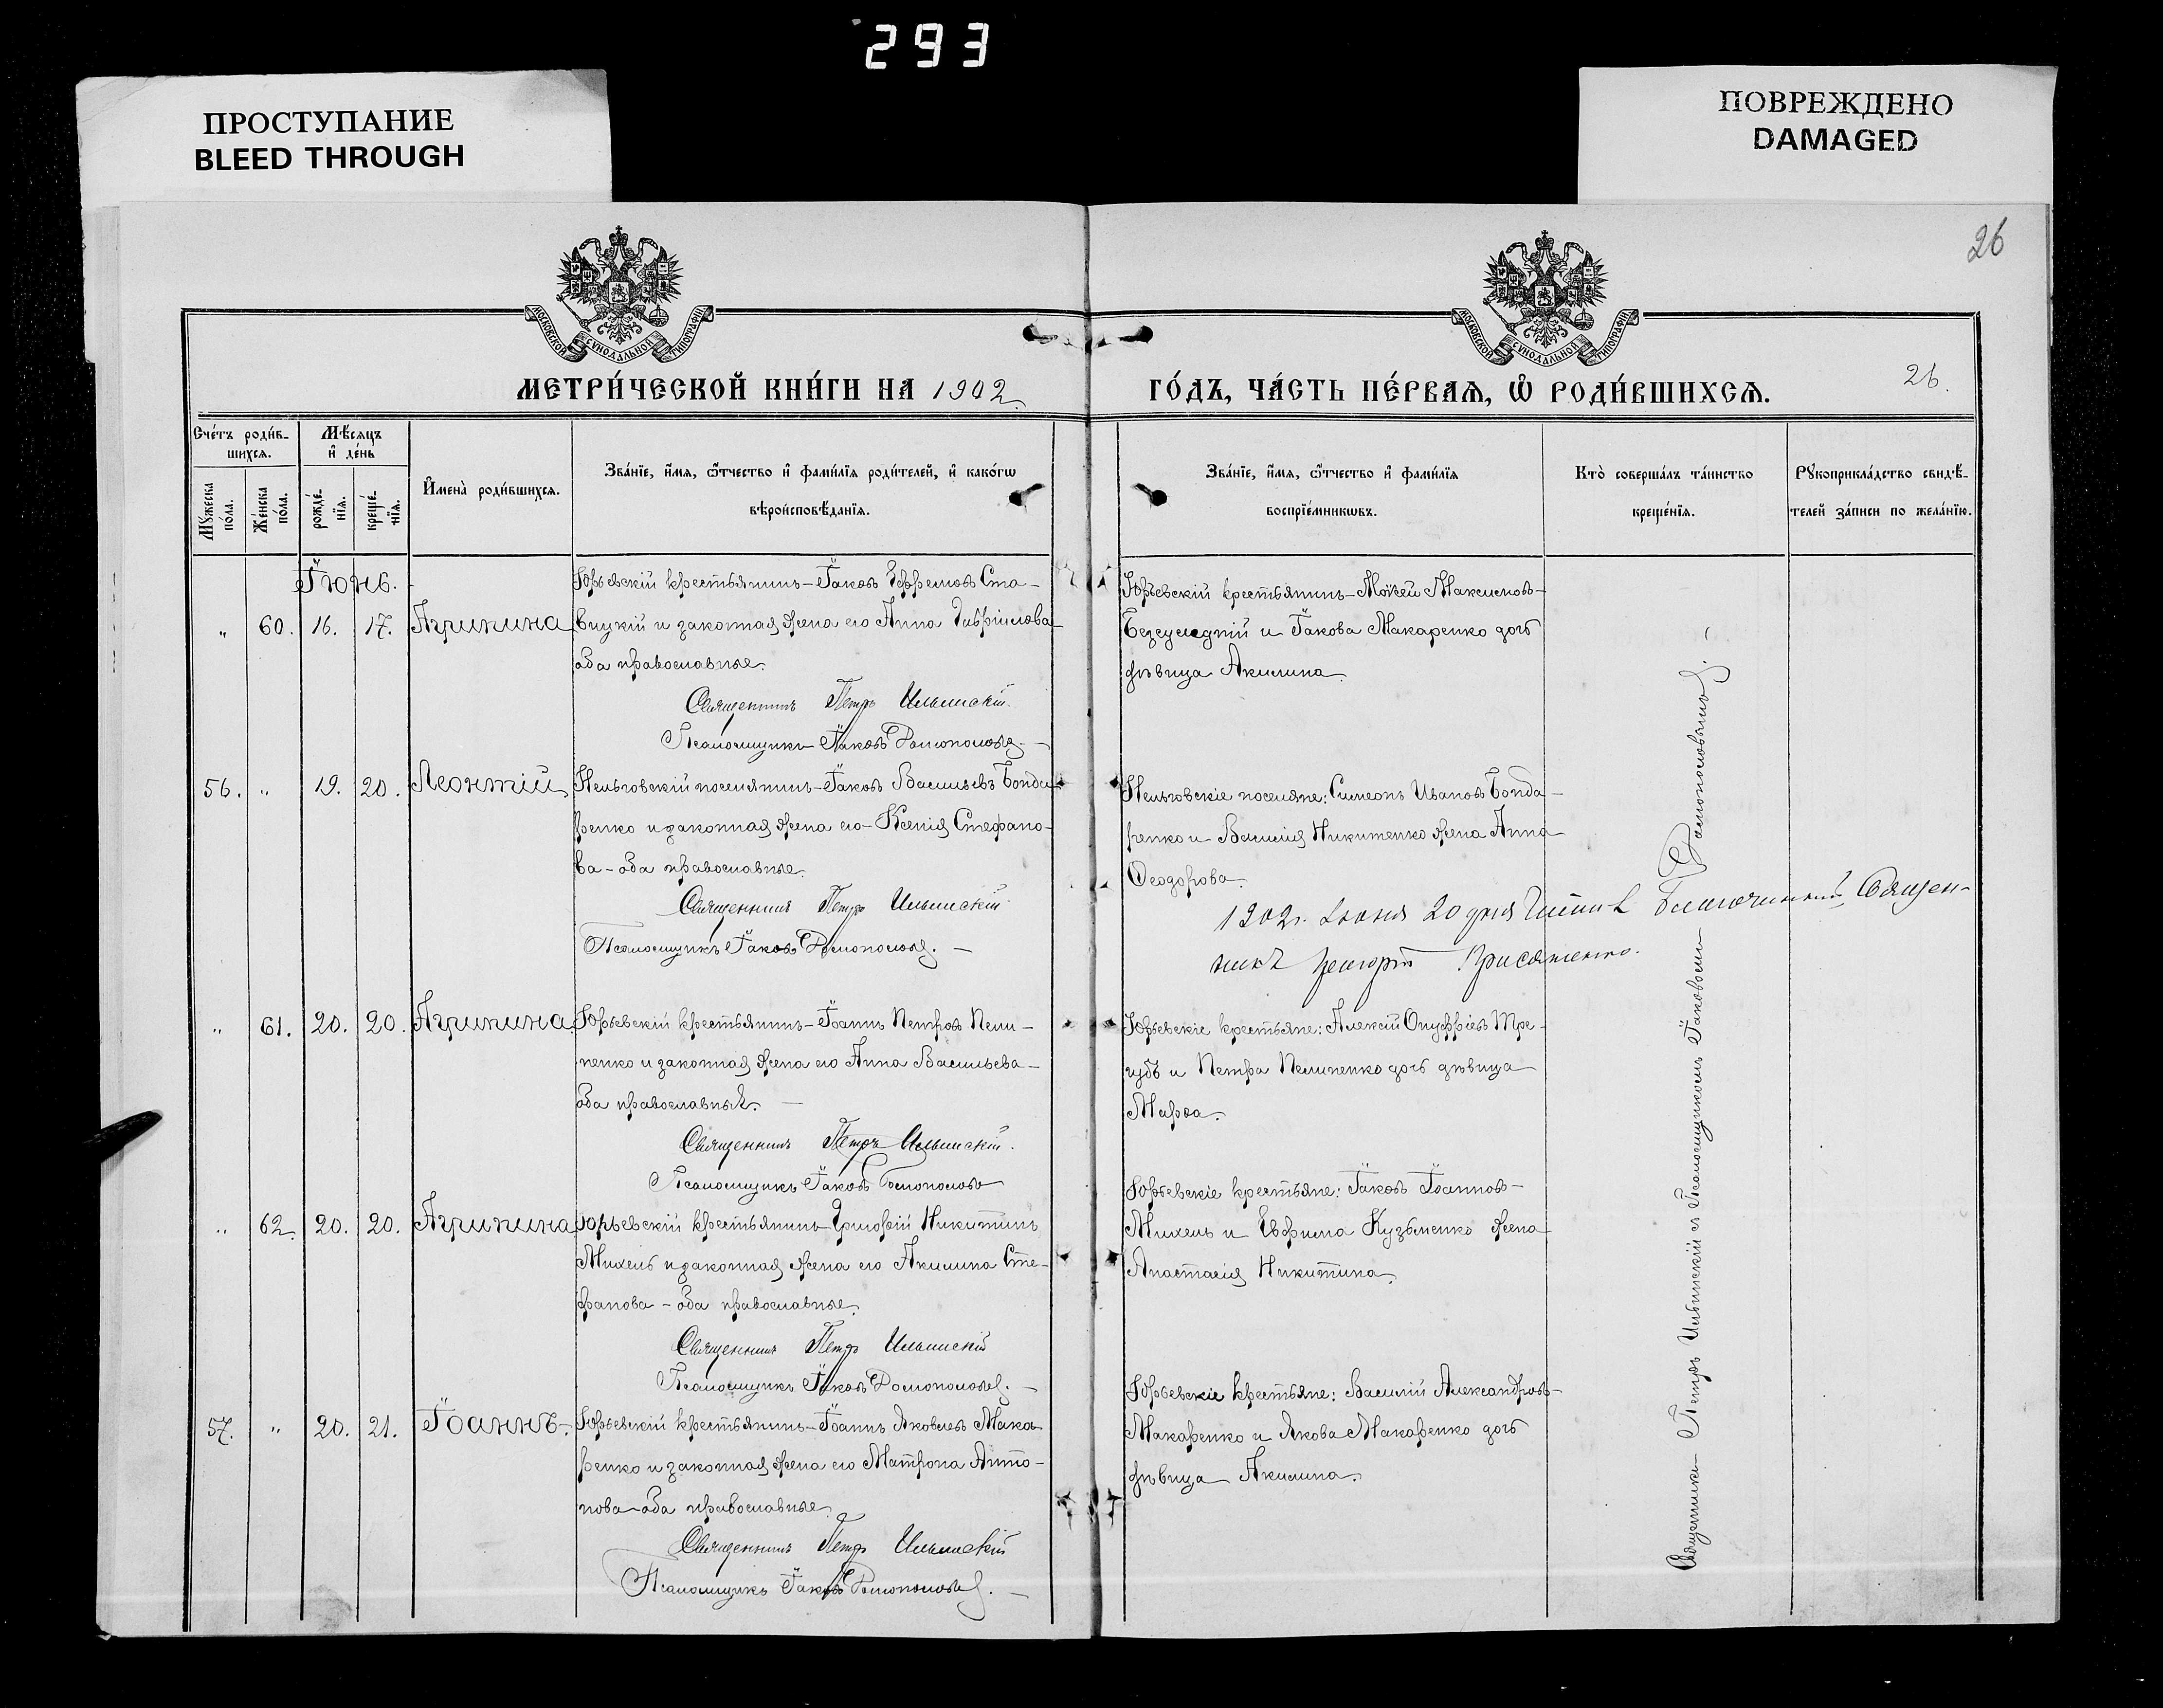 293
ПРОСТУПАНИЕ
BLEED THROUGH
ПОВРЕЖДЕНО
DAMAGED
26
МОСКОВСКОЙ СѴНОДАЛЬНОЙ ТИПОГРАФІИ
МОСКОВСКОЙ СѴНОДАЛЬНОЙ ТИПОГРАФІИ
МЕТРИ́ЧЕСКОЙ КНИ́ГИ НА 1902
ГО́ДЪ, ЧА́СТЬ ПЕ́РВАѦ, Ѡ҆ РОДИ́ВШИХСѦ.
26.
Сче́тъ роди́в-
шихсѧ.
Мѣ́сяцъ
и҆ де́нь
Мꙋ́жеска по́ла.
Же́нска по́ла.
рожде́-нїѧ.
креще́-нїѧ.
И҆мена̀ роди́вшихсѧ.
Зва́нїе, и҆́мѧ, ѻ҆́тчество и҆ фами́лїѧ роди́телей, и҆ како́гѡ
вѣроисповѣ́данїѧ.
Зва́нїе, и҆́мѧ, ѻ҆́тчество и҆ фами́лїѧ
воспрїе́мникѡвъ.
Кто̀ соверша́лъ та́инство
креще́нїѧ.
Рꙋкоприкла́дство свидѣ́-
телей за́писи по жела́нїю.
Іюнь.
Юрьевскій крестьянинъ – Іаковъ Ефремовъ Ста-
„ 60. 16. 17. Агрипина
вицкій и законная жена его Анна Гавріилова
оба православные.
Священникъ Петръ Ильинскій.
Псаломщикъ Іаковъ
Юрьевскій крестьянинъ – Моѵсей Максимовъ –
и Іакова Макаренко дочь
дѣвица Акилина.
56. „ 19. 20. Леонтій
поселянинъ – Іаковъ Васильевъ Бонда-
ренко и законная жена его – Ксенія Стефано-
ва – оба православные.
Священникъ Петръ Ильинскій.
Псаломщикъ Іаковъ
поселяне: Симеонъ Ивановъ Бонда-
ренко и Василія Никитенко жена Анна
Ѳеодорова.
1902г. Іюня 20 дня Благочинный, Священ-
никъ
„ 61. 20. 20. Агрипина.
Юрьевскій крестьянинъ – Іоаннъ Петровъ Пели-
пенко и законная жена его Анна Васильева –
оба православные. –
Священникъ Петръ Ильинскій.
Псаломщикъ Іаковъ
Юрьевскіе крестьяне: Алексій Онуфріевъ Тре-
губъ и Петра Пелипенко дочь дѣвица
Марѳа.
„ 62. 20. 20. Агрипина
Юрьевскій крестьянинъ – Григорій Никитинъ
Михель и законная жена его Акилина Сте-
фанова – оба православные.
Священникъ Петръ Ильинскій
Псаломщикъ Іаковъ
Юрьевскіе крестьяне: Іаковъ Іоанновъ –
Михель и Евфима Кузьменко жена
Анастасія Никитина.
57. „ 20. 21. Іоаннъ.
Юрьевскій крестьянинъ – Іоаннъ Яковлевъ Мака-
ренко и законная жена его Матрона Анто-
нова – оба православные.
Священникъ Петръ Ильинскій
Псаломщикъ Іаковъ
Юрьевскіе крестьяне: Василій Александровъ –
Макаренко и Якова Макаренко дочь
дѣвица Акилина.
Священникъ Петръ Ильинскій съ Псаломщикомъ Іаковомъ